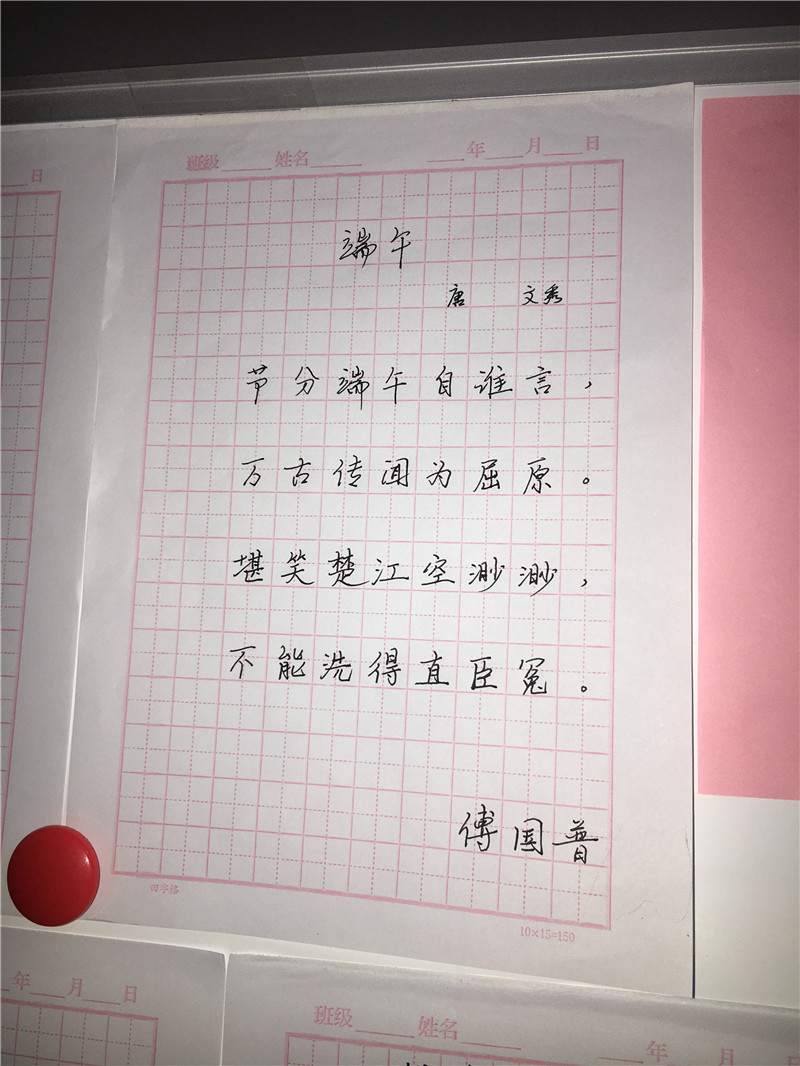 日
班级 姓名 年 月 日
端午
唐 文秀
节分端午自谁言，
万古传闻为屈原。
堪笑楚江空渺渺，
不能洗得直臣冤。
傅国普
田字格
10×15=150
年 月 日
班级 姓名 年 月 日